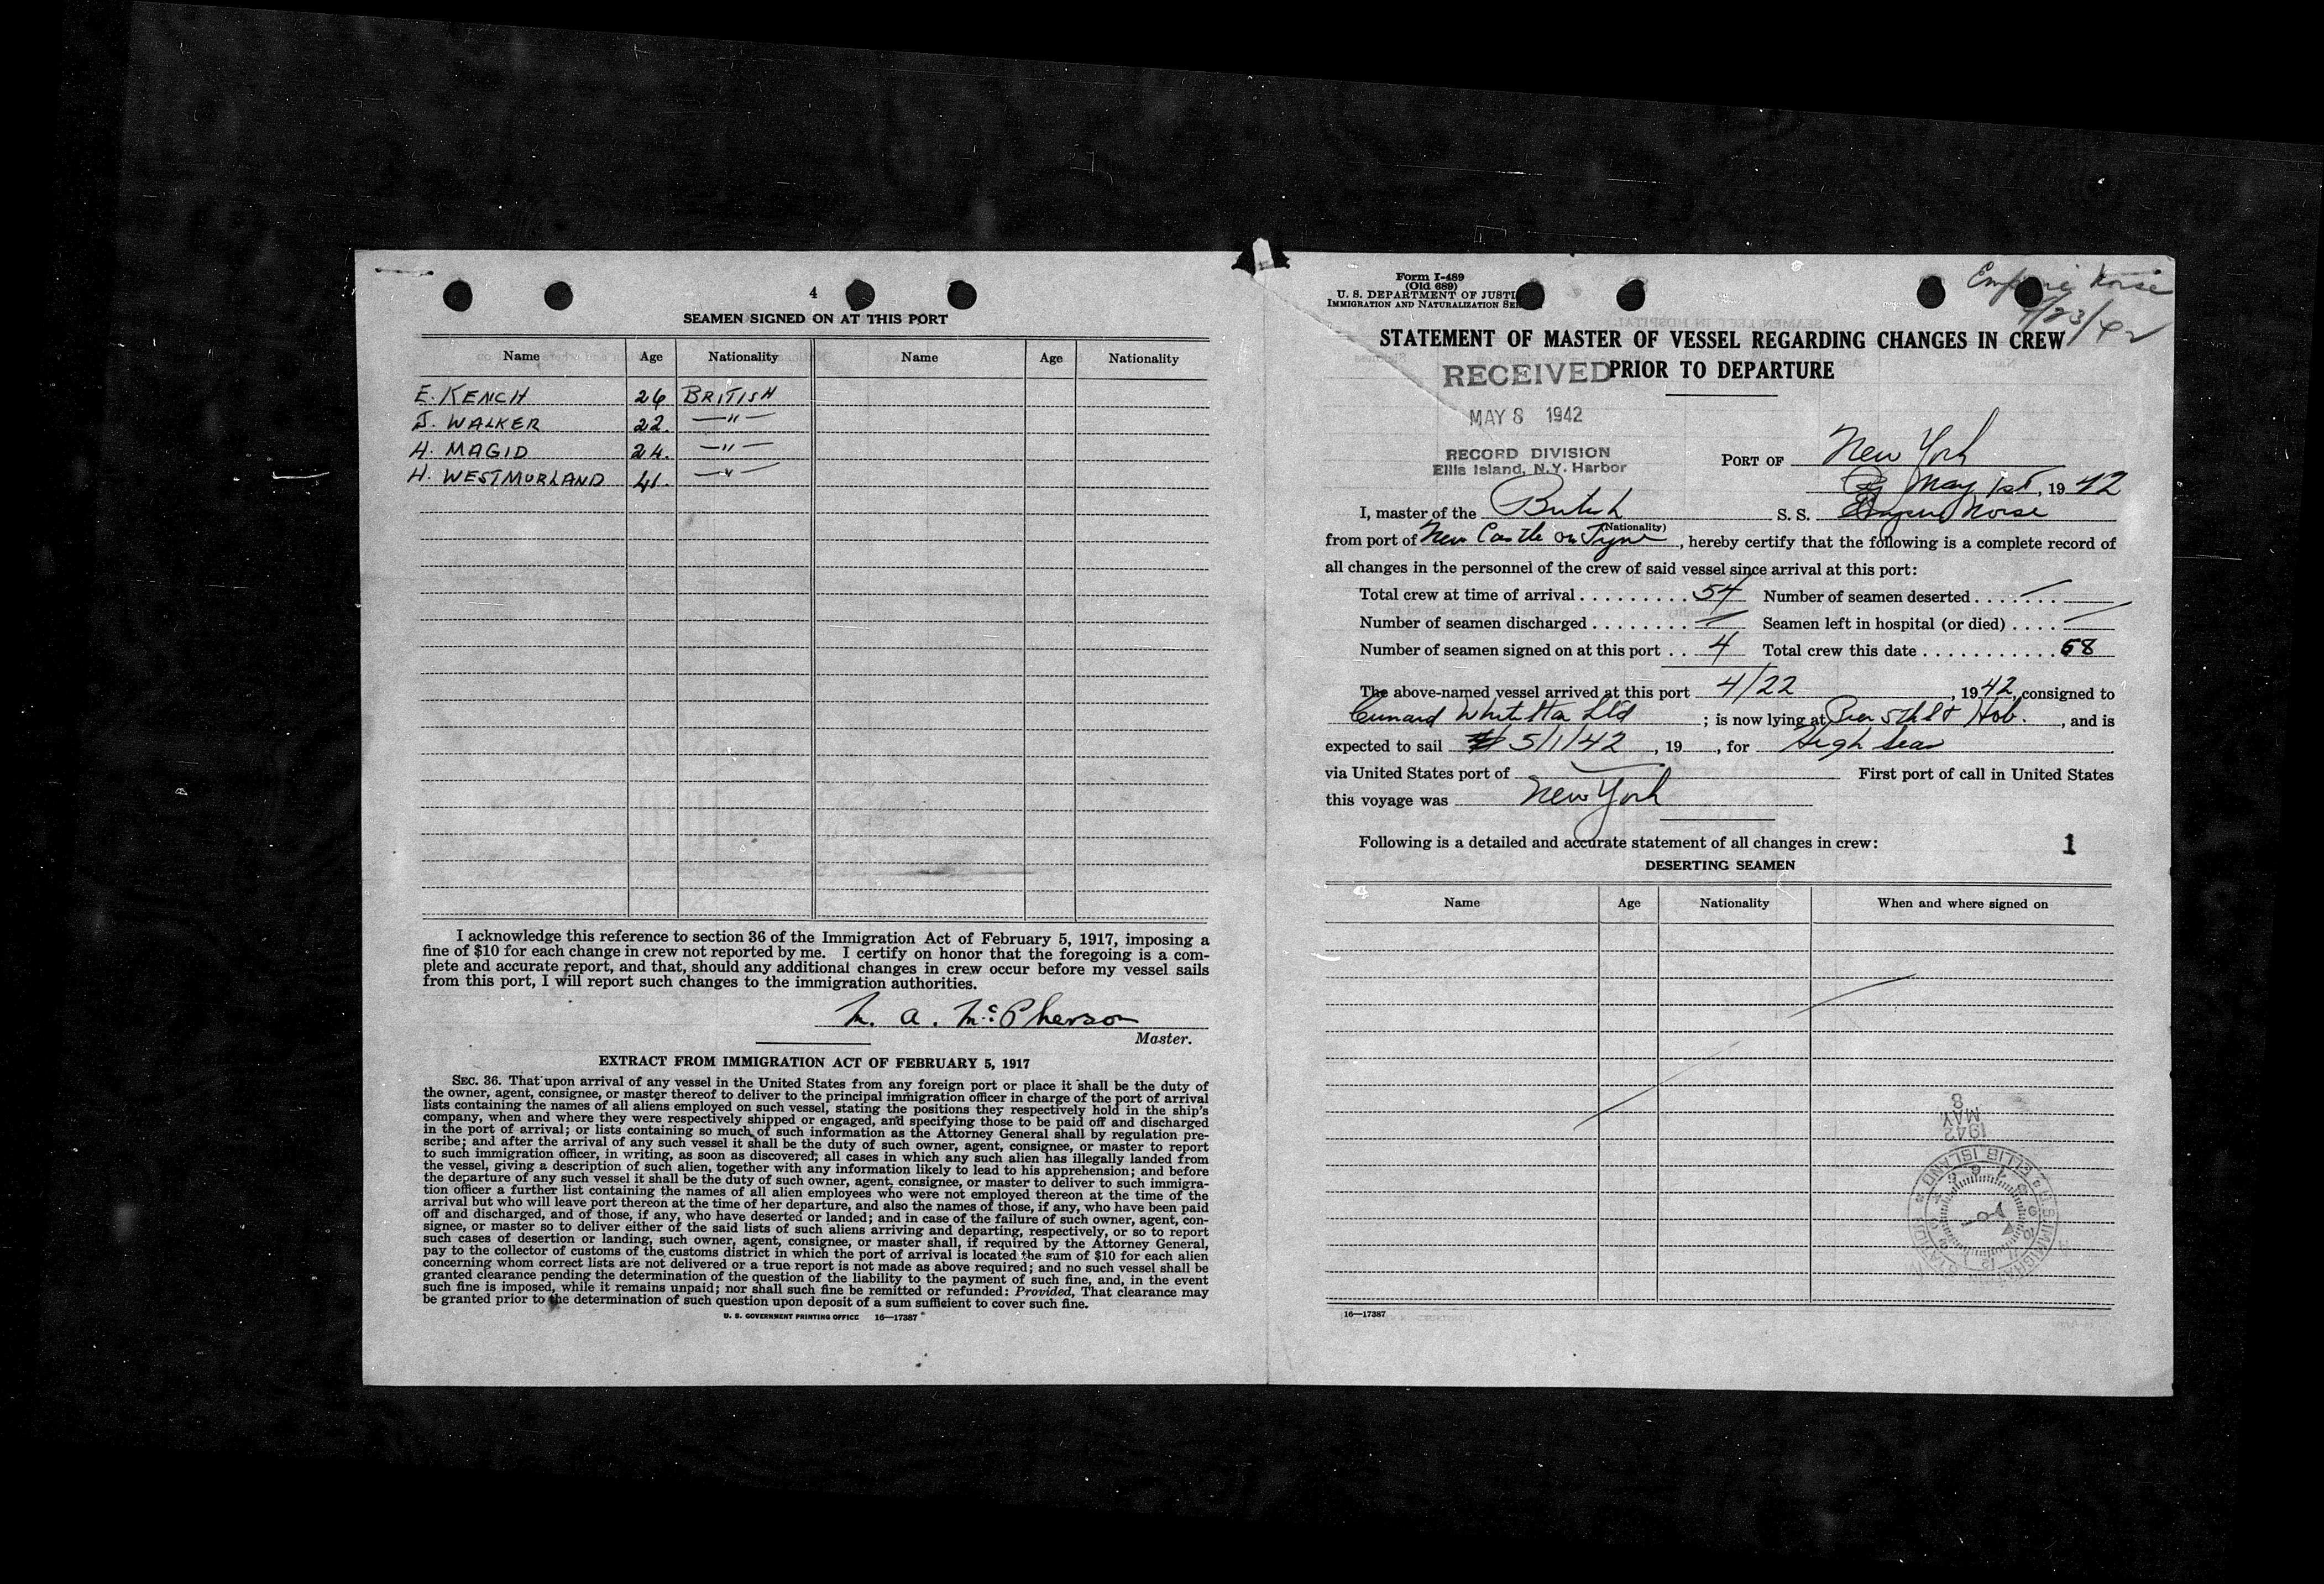 4
SEAMEN SIGNED ON AT THIS PORT
Name Age Nationality Name Age Nationality
E. KENCH 26 BRITISH
J. WALKER 22. —"—
H. MAGID 24. —"—
H. WESTMORLAND 41. —"—
I acknowledge this reference to section 36 of the Immigration Act of February 5, 1917, imposing a
fine of $10 for each change in crew not reported by me. I certify on honor that the foregoing is a com-
plete and accurate report, and that, should any additional changes in crew occur before my vessel sails
from this port, I will report such changes to the immigration authorities.
M. A. McPherson
Master.
EXTRACT FROM IMMIGRATION ACT OF FEBRUARY 5, 1917
SEC. 36. That upon arrival of any vessel in the United States from any foreign port or place it shall be the duty of
the owner, agent, consignee, or master thereof to deliver to the principal immigration officer in charge of the port of arrival
lists containing the names of all aliens employed on such vessel, stating the positions they respectively hold in the ship's
company, when and where they were respectively shipped or engaged, and specifying those to be paid off and discharged
in the port of arrival; or lists containing so much of such information as the Attorney General shall by regulation pre-
scribe; and after the arrival of any such vessel it shall be the duty of such owner, agent, consignee, or master to report
to such immigration officer, in writing, as soon as discovered, all cases in which any such alien has illegally landed from
the vessel, giving a description of such alien, together with any information likely to lead to his apprehension; and before
the departure of any such vessel it shall be the duty of such owner, agent, consignee, or master to deliver to such immigra-
tion officer a further list containing the names of all alien employees who were not employed thereon at the time of the
arrival but who will leave port thereon at the time of her departure, and also the names of those, if any, who have been paid
off and discharged, and of those, if any, who have deserted or landed; and in case of the failure of such owner, agent, con-
signee, or master so to deliver either of the said lists of such aliens arriving and departing, respectively, or so to report
such cases of desertion or landing, such owner, agent, consignee, or master shall, if required by the Attorney General,
pay to the collector of customs of the customs district in which the port of arrival is located the sum of $10 for each alien
concerning whom correct lists are not delivered or a true report is not made as above required; and no such vessel shall be
granted clearance pending the determination of the question of the liability to the payment of such fine, and, in the event
such fine is imposed, while it remains unpaid; nor shall such fine be remitted or refunded: Provided, That clearance may
be granted prior to the determination of such question upon deposit of a sum sufficient to cover such fine.
U. S. GOVERNMENT PRINTING OFFICE 16—17387
Form I-489
(Old 689)
U. S. DEPARTMENT OF JUSTI
IMMIGRATION AND NATURALIZATION SE
Empire Norse
4/23/42
STATEMENT OF MASTER OF VESSEL REGARDING CHANGES IN CREW
PRIOR TO DEPARTURE
RECEIVED
MAY 8 1942
RECORD DIVISION
Ellis Island, N.Y. Harbor
PORT OF New York
May 1st, 1942
I, master of the British S. S. Empire Norse
(Nationality)
from port of New Castle on Tyne, hereby certify that the following is a complete record of
all changes in the personnel of the crew of said vessel since arrival at this port:
Total crew at time of arrival . . . . . . . . . 54 Number of seamen deserted . . . . . . . —
Number of seamen discharged . . . . . . . — Seamen left in hospital (or died) . . . . —
Number of seamen signed on at this port . . 4 Total crew this date . . . . . . . . . . . 58
The above-named vessel arrived at this port 4/22, 1942, consigned to
Cunard White Star Ltd; is now lying at Pier 5th St Hob., and is
expected to sail 5/1/42, 19 , for High Seas
via United States port of — First port of call in United States
this voyage was New York
Following is a detailed and accurate statement of all changes in crew:
1
DESERTING SEAMEN
Name Age Nationality When and where signed on
MAY 8
1942
ELLIS ISLAND
16—17387